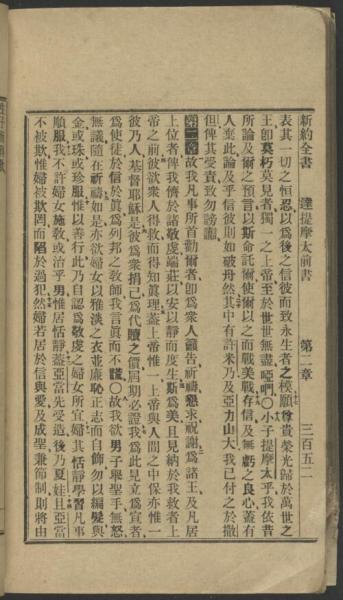 新約全書　達提摩太前書　第二章　三百五二
表其一切之恒忍以爲後之信彼而致永生者之模願尊貴榮光歸於萬世之
王卽莫朽莫見者獨一之上帝至於世世無盡啞們〇小子提摩太乎我依昔
所論及爾之預言以斯命託爾使爾以之而戰美戰存信及無虧之良心蓋有
人棄此論及乎信彼則如破舟然其中有許米乃及亞力山大我已付之於撒
但俾其受責致勿謗讟
第二章故我凡事所首勸爾者卽爲衆人籲告祈禱懇求祝謝爲諸王及凡居
上位者俾我儕於諸敬虔端莊以安以靜而度生斯爲美且見納於我救者上
帝之前彼欲衆人得救而得知眞理蓋上帝惟一上帝與人間之中保亦惟一
彼乃人基督耶穌是彼爲衆捐己爲代贖之價屆期必證我爲此見立爲宣者
爲使徒於信於眞爲列邦之敎師我言眞而不謊〇故我欲男子舉聖手無怒
無議隨在祈禱如是亦欲婦女以雅淡之衣並廉恥正志而自飾勿以編髮與
金或珠或珍服惟以善行此乃自認爲敬虔之婦女所宜婦其恬靜學習凡事
順服我不許婦女施敎或治乎男惟居恬靜蓋亞當先受造後乃夏娃且亞當
不被欺惟婦被欺罔而陷於過犯然婦若居於信與愛及成聖兼節制則將由